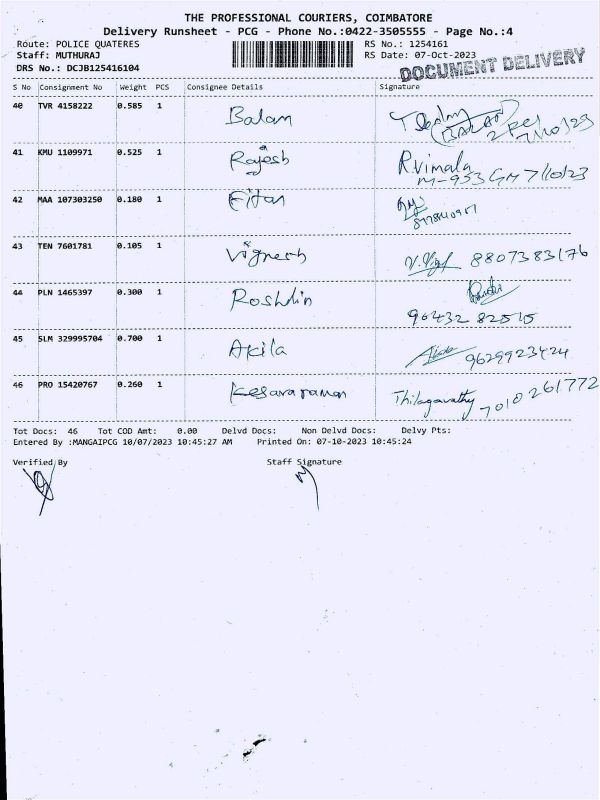 THE PROFESSIONAL COURIERS, COIMBATORE
Delivery Runsheet - PCG - Phone No.:0422-3505555 - Page No.:4
Route: POLICE QUATERES RS No.: 1254161
Staff: MUTHURAJ RS Date: 07-Oct-2023
DRS No.: DCJB125416104 DOCUMENT DELIVERY
S No Consignment No Weight PCS Consignee Details Signature
40 TVR 4158222 0.585 1 Balan
7/10/23
41 KMU 1109971 0.525 1 Rajesh R.vimala
7/10/23
42 MAA 107303250 0.180 1
43 TEN 7601781 0.105 1 Vignesh 8807383176
44 PLN 1465397 0.300 1 Roshlin
96432 82515
45 SLM 329995704 0.700 1 Akila 9629923424
46 PRO 15420767 0.260 1 Kesavaraman Thilagavathy 7010261772
Tot Docs: 46 Tot COD Amt: 0.00 Delvd Docs: Non Delvd Docs: Delvy Pts:
Entered By :MANGAIPCG 10/07/2023 10:45:27 AM Printed On: 07-10-2023 10:45:24
Verified By Staff Signature